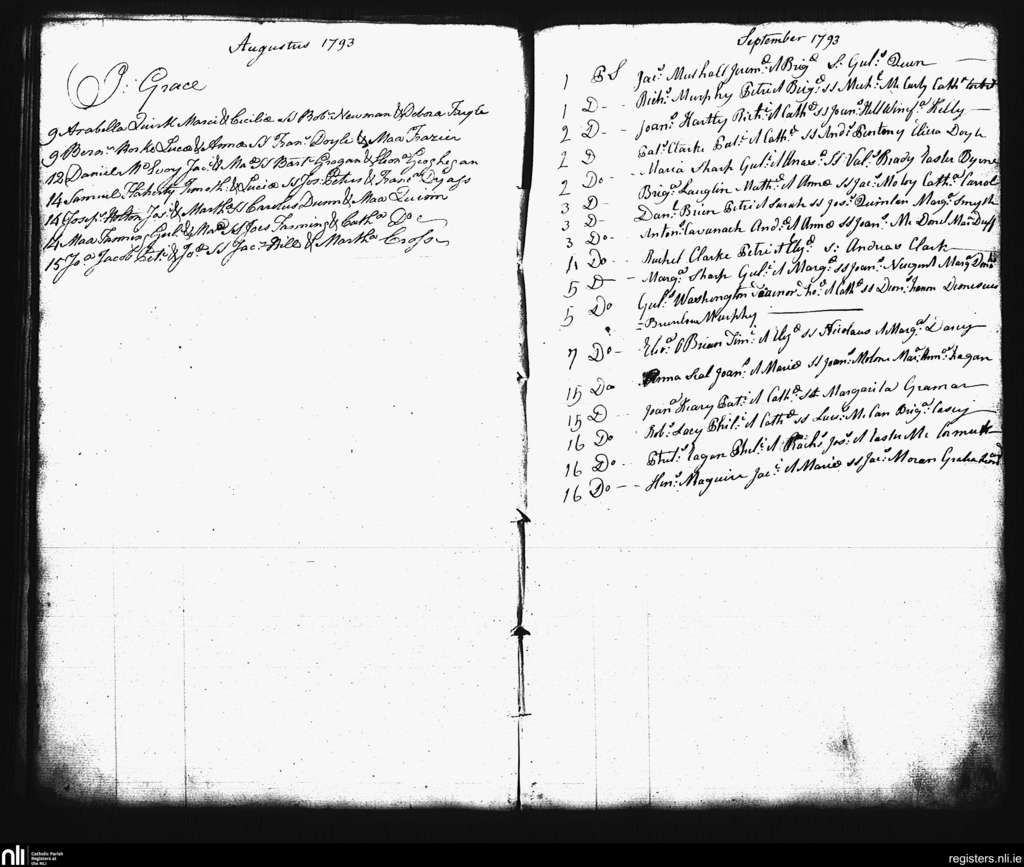 Augustus 1793
P: Grace
9 Arabella Quirk Marci & Ceciliæ SS Rob: Newman & Debora Fayle
9 Lucæ & Annæ SS Fran: Doyle & Maa Frazier
12 Daniel Mc Evoy Jac: & Maæ SS Bart: Grogan & Elean: Geoghegan
14 Samuel Flaherty Timoth: & Luciæ SS Jos: Peters & Fran:
14 Joseph: Horton Jos: & Martha SS Dunn & Maa Quinn
14 Maa Fanning Guil: & Maæ SS Joes Fanning & Catha Do
15 Joa Jacob Pet: & Joæ SS Jac: Hill & Martha Cross
September 1793
1 BS Jac: Mushall Jerem: & Brigd S: Gul: Dunn
1 D- Rich: Murphy Petri & Brigd SS Mich: Mc Carly Cath:
2 D- Joan: Hartty Rich: & Cathæ SS Joan: Hill Winifr: Kelly
2 D Pat: Clarke Pat: & Cathæ SS And: Eliza Doyle
2 Do- Maria Sharp Gul: & SS Val: Brady Easter Byrne
3 D- Brig: Lauglin Math: & Annæ SS Jac: Moloy Catha Carrol
3 D- Dan: Brien Petri & Sarah SS Jos: Quinlan Marg: Smyth
3 Do- Anton: Cavanach And: & Annæ SS Joan: Mc Donl Mar: Duff
4 Do- Rachel Clarke Petri & Eliz: S: Andreas Clark
5 D- Marg: Sharp Gul: & Marg: SS Joan: Nugent Marga
5 Do Gul: Washington & Cathæ SS Dion: Dionisius
Murphy
7 Do- O Brian Tim: & SS Nicolaus & Marga Darcy
15 Do Anna Seal Joan: & Mariæ SS Joan: Molone Mar: Anna Eagan
15 D- Joana Keary Pat: & Cathæ Margarita Gramar
16 Do Rob: Lacy Phil: & Cathæ SS Mc Can Briga Casey
16 Do- Phil: Eagan Phil: & Jos: & Easter Mc
16 Do- Hen: Maguire Jac: & Mariæ SS Jac: Moran
nli
Catholic Parish
Registers at
the NLI
registers.nli.ie